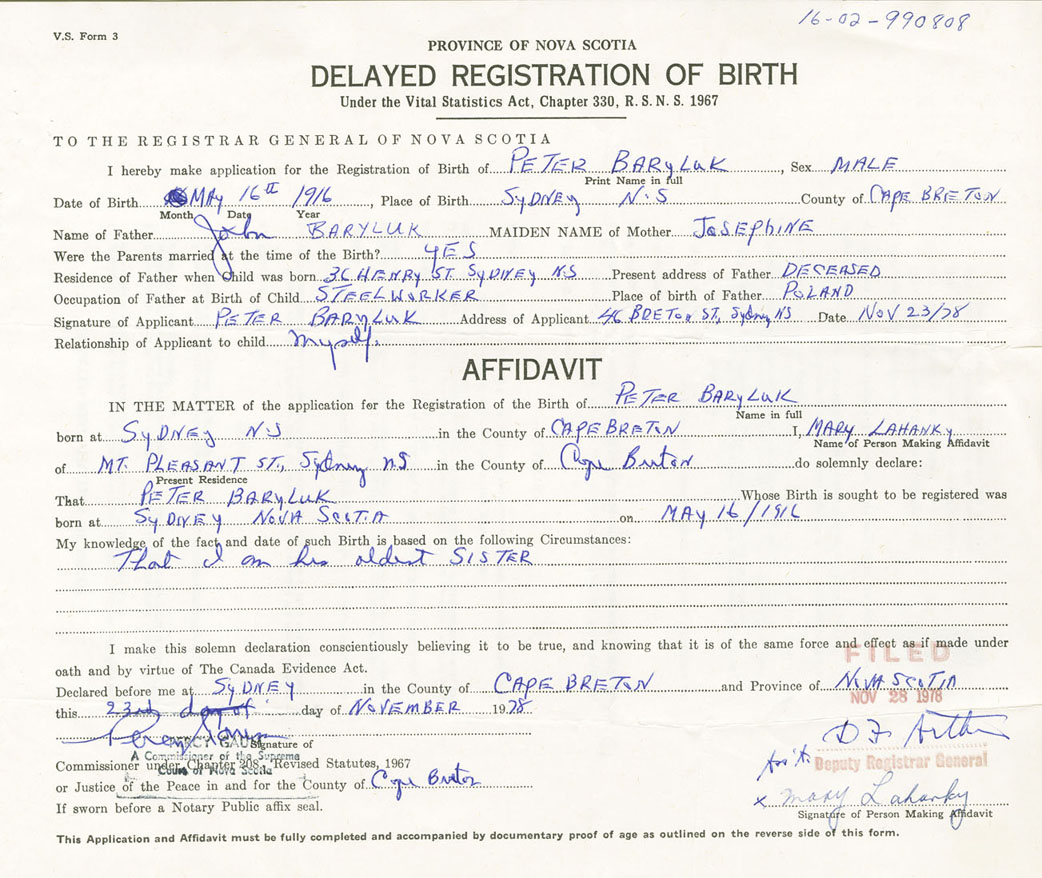 16-02-990808
V.S. Form 3
PROVINCE OF NOVA SCOTIA
DELAYED REGISTRATION OF BIRTH
Under the Vital Statistics Act, Chapter 330, R.S.N.S. 1967
TO THE REGISTRAR GENERAL OF NOVA SCOTIA
I hereby make application for the Registration of Birth of PETER BARYLUK, Sex MALE
Print Name in full
Date of Birth MAY 16th 1916, Place of Birth SYDNEY N.S County of CAPE BRETON
Month Date Year
Name of Father John BARYLUK MAIDEN NAME of Mother JOSEPHINE
Were the Parents married at the time of the Birth? YES
Residence of Father when Child was born HENRY ST. SYDNEY N.S Present address of Father DECEASED
Occupation of Father at Birth of Child STEELWORKER Place of birth of Father POLAND
Signature of Applicant PETER BARYLUK Address of Applicant 46 BRETON ST., Sydney NS Date NOV 23/78
Relationship of Applicant to child myself.
AFFIDAVIT
IN THE MATTER of the application for the Registration of the Birth of PETER BARYLUK
Name in full
born at SYDNEY N.S in the County of CAPE BRETON I, MARY LAHANKY
Name of Person Making Affidavit
of MT. PLEASANT ST., Sydney N.S in the County of Cape Breton do solemnly declare:
Present Residence
That PETER BARYLUK Whose Birth is sought to be registered was
born at SYDNEY NOVA SCOTIA on MAY 16/1916
My knowledge of the fact and date of such Birth is based on the following Circumstances:
That I am his oldest SISTER
I make this solemn declaration conscientiously believing it to be true, and knowing that it is of the same force and effect as if made under
oath and by virtue of The Canada Evidence Act.
FILED
Declared before me at SYDNEY in the County of CAPE BRETON and Province of NOVA SCOTIA
NOV 28 1978
this 23rd day of day of NOVEMBER 1978
Signature of
A Commissioner of the Supreme
Court of Nova Scotia
Commissioner under Chapter 208, Revised Statutes, 1967
Deputy Registrar General
or Justice of the Peace in and for the County of Cape Breton
x Mary Lahanky
Signature of Person Making Affidavit
If sworn before a Notary Public affix seal.
This Application and Affidavit must be fully completed and accompanied by documentary proof of age as outlined on the reverse side of this form.